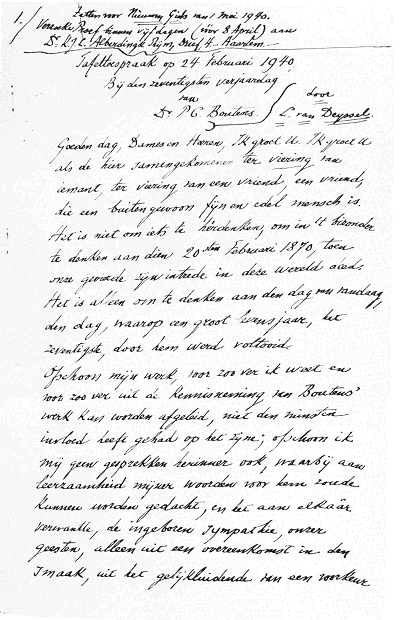 1./ Zetten voor Nieuwe Gids van 1 mei 1940.
Verzoeke Proef binnen vijf dagen (vóór 8 April) aan
Dr K.J.L. Alberdingk Thijm, Dreef 4 Haarlem.
Tafeltoespraak op 24 Februari 1940,
Bij den zeventigsten verjaardag
van
Dr P.C. Boutens.
door
L. van Deyssel.
Goeden dag, Dames en Heeren, Ik groet U. Ik groet U
als de hier samengekomenen ter viering van
iemant, ter viering van een vriend, een vriend,
die een buitengewoon fijn en edel mensch is.
Het is niet om iets te herdenken, om in 't bizonder
te denken aan dien 20sten Februari 1870, toen
onze gevierde zijn intrede in deze wereld deed.
Het is alleen om te denken aan den dag van vandaag,
den dag, waarop een groot levensjaar, het
zeventigste, door hem werd voltooid.
Ofschoon mijn werk, voor zoo ver ik weet en
voor zoo ver uit de kennisneming van Boutens'
werk kan worden afgeleid, niet den minsten
invloed heeft gehad op het zijne; ofschoon ik
mij geen gesprekken herinner ook, waarbij aan
leerzaamheid mijner woorden voor hem zoude
kunnen worden gedacht, en het aan elkaâr
verwante, de ingeboren sympathie, onzer
geesten, alleen uit een overeenkomst in den
smaak, uit het gelijkluidende van een voorkeur